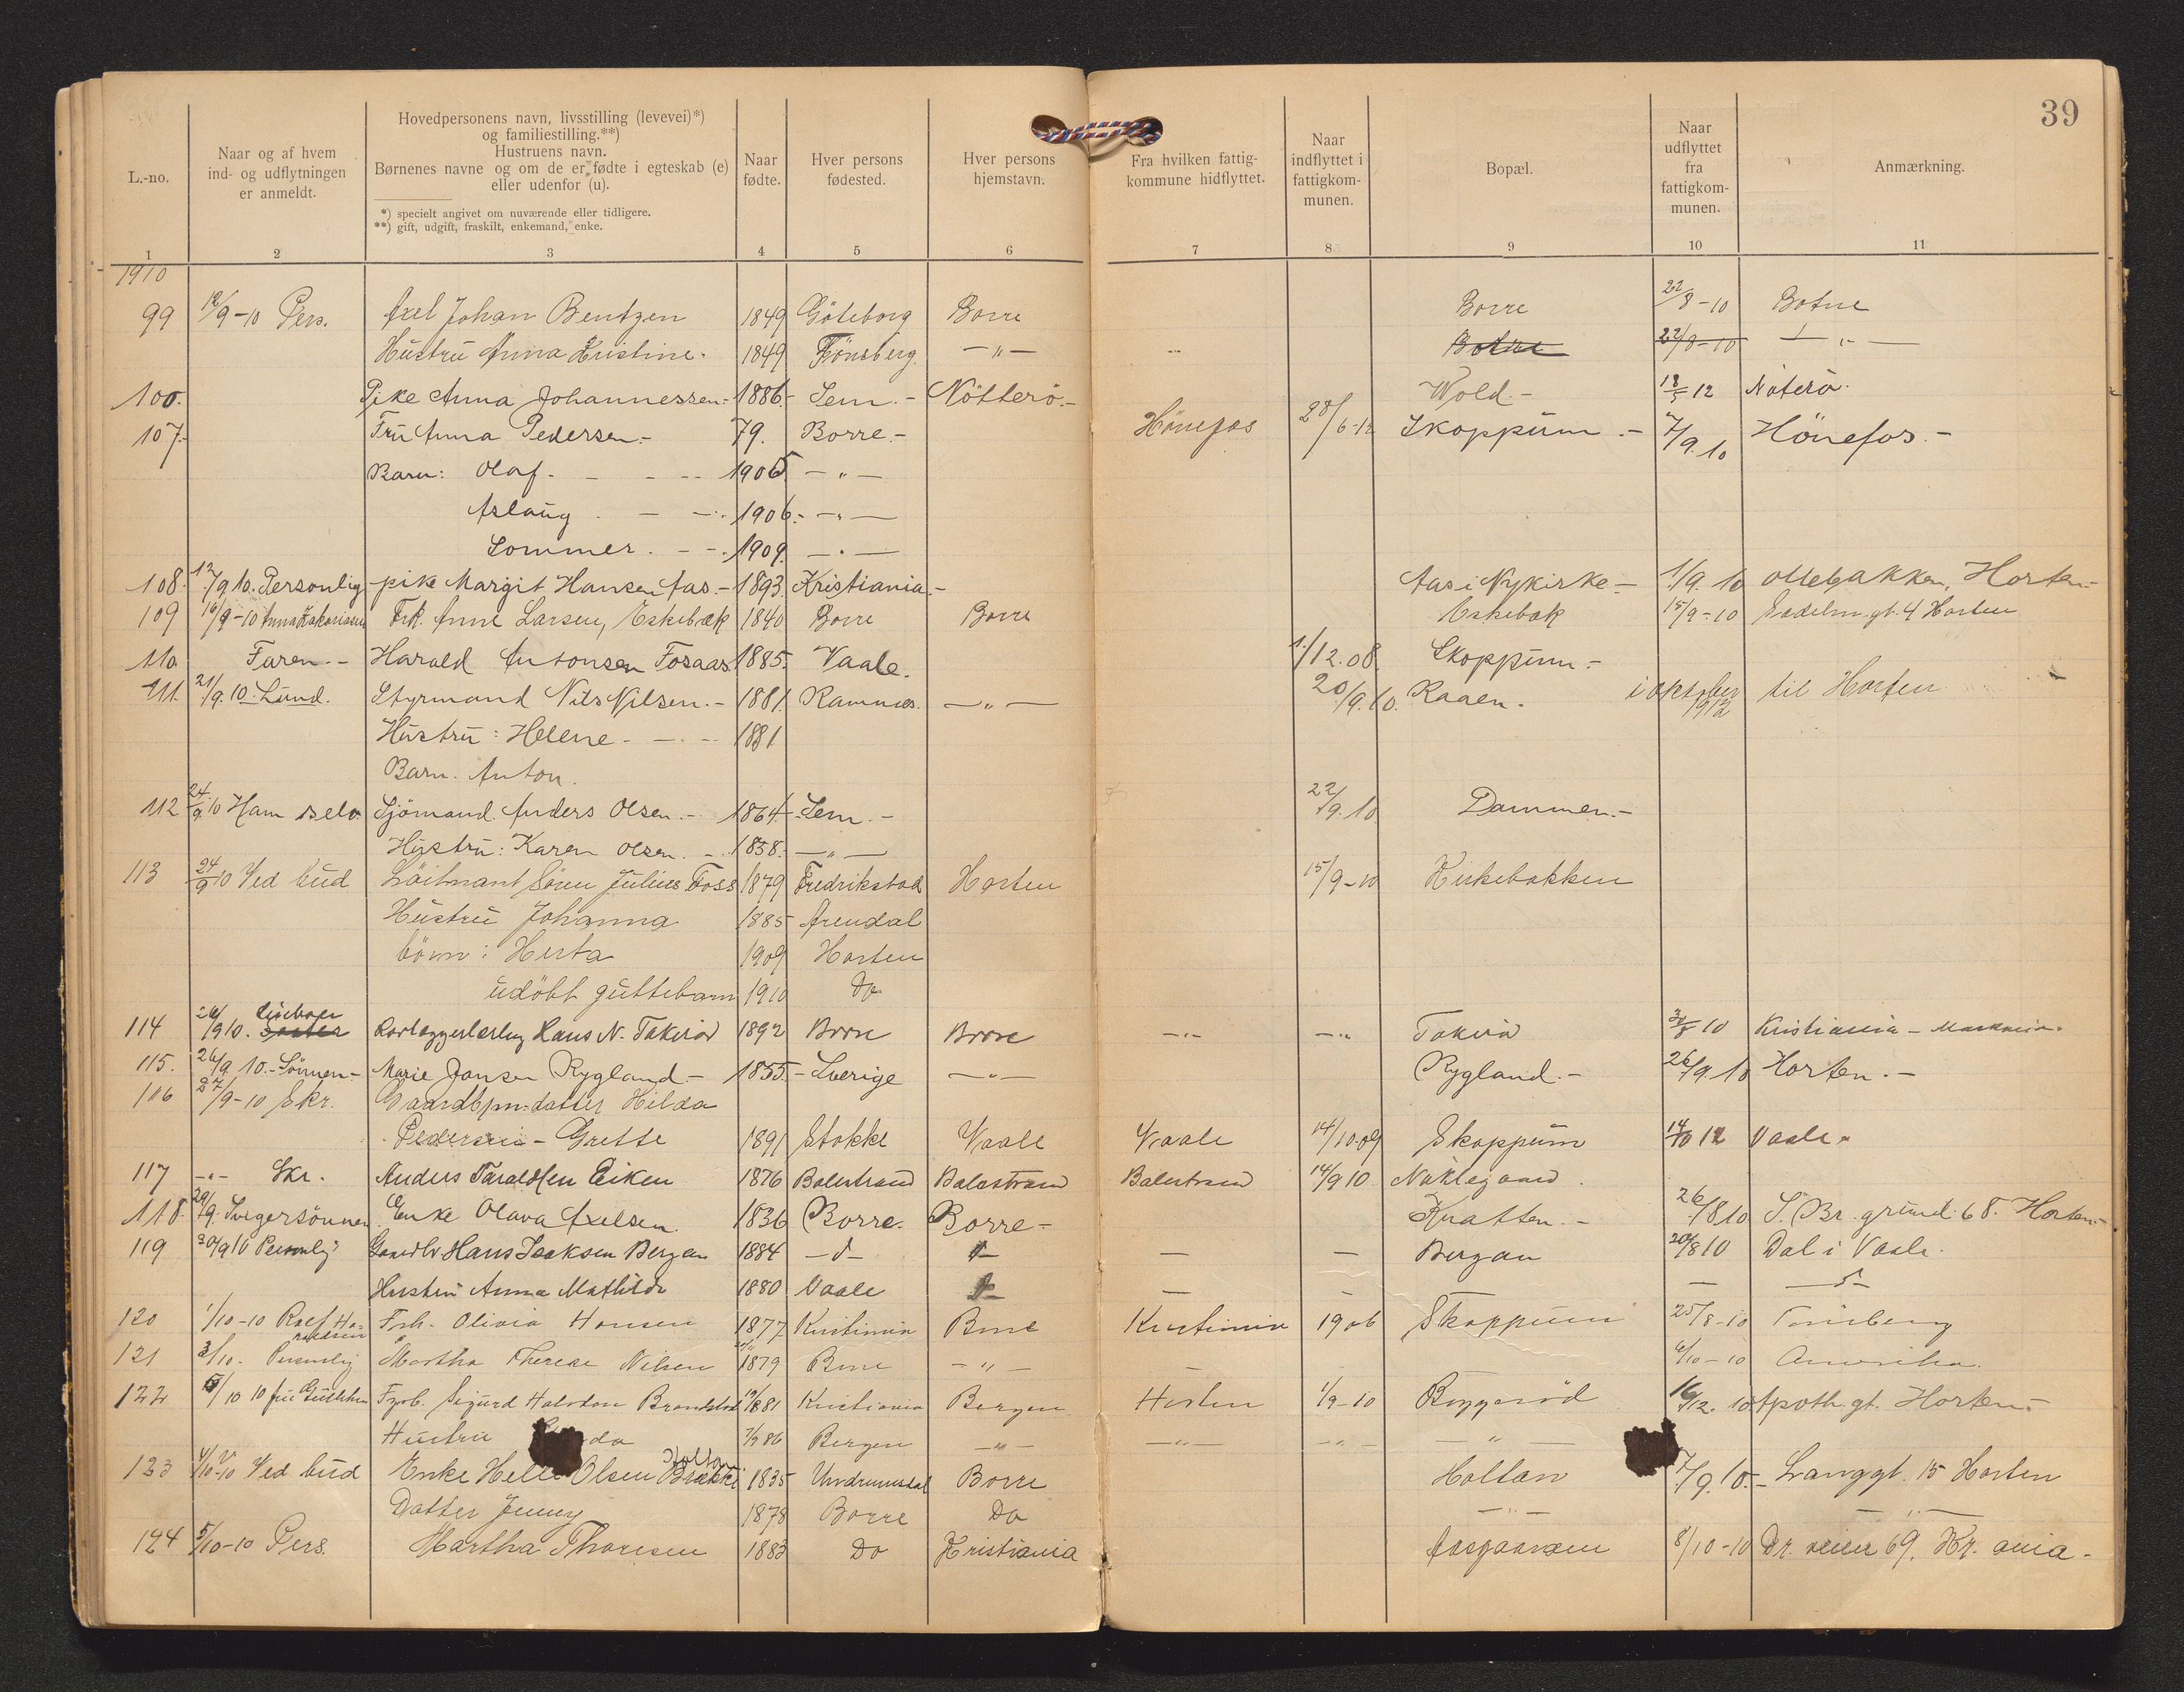 39
L.-no.
Naar og af hvem ind- og udflytningen er anmeldt.
Hovedpersonens navn, livsstilling (levevei)*) og familiestilling.**)
Hustruens navn.
Børnenes navne og om de er fødte i egteskab (e) eller udenfor (u).
*) specielt angivet om nuværende eller tidligere.
**) gift, ugift, fraskilt, enkemand, enke.
Naar fødte.
Hver persons fødested.
Hver persons hjemstavn.
Fra hvilken fattigkommune hidflyttet.
Naar indflyttet i fattigkommunen.
Bopæl.
Naar udflyttet fra fattigkommunen.
Anmærkning.
1 2 3 4 5 6 7 8 9 10 11
1910
99 12/9-10 Pers. Axel Johan Bentzen 1849 Göteborg Borre Borre 22/8-10 Botne
Hustru Anna Kristine. 1849 Tönsberg. -"- Botne 22/8-10 -"-
100. Pike Anna Johannessen.- 1886.- Sem.- Nötterö.- Wold.- 18/5 12 Nöterö.
107.- Fru Anna Pedersen.- 79. Borre.- Hönefos 28/6-12 Skoppum.- 7/9.10 Hönefos.-
Barn: Olaf.- 1905 -"-
Aslaug.- 1906.- -"-
Sommer.- 1909. -"-
108. 12/9.10. Personlig pike Margit Hansen Aas.- 1893. Kristiania.- Aas i Nykirke.- 1/9.10 Ollebakken, Horten.-
109 16/9-10 Anna Zakariasen Frk. Anne Larsen, Eskebæk 1840 Borre Borre Eskebæk 15/9-10 gt. 4 Horten
110 Faren.- Harald Antonsen Fosaas. 1885. Vaale. 1/12.08 Skoppum.-
111. 21/9.10. Lund. Styrmand Nils Nilsen.- 1881. Ramnes. -"- 20/9.10. Raaen. i oktober 1912 til Horten
Hustru: Helene.- 1881
Barn. Anton.
112 24/9 10 Ham selv Sjömand. Anders Olsen.- 1864.- Sem.- 22/9.10 Dammen.-
Hustru: Karen Olsen.- 1858.- -"-
113 24/9 10 Ved bud Löitnant Sören Julius Foss 1879 Fredrikstad Horten 15/9-10 Kirkebakken
Hustru Johanna 1885 Arendal
börn: Herta 1909 Horten
udöbt guttebarn 1910 Do
114 26/9 10. Hans N. Takerød 1892 Borre Borre -"- -"- Takerød 30/8 10 Kristiania -
115. 26/9 10.- Sönnen.- Marie Jansen Rygland.- 1855.- Sverige -"- Rygland.- 26/9.10 Horten.-
106 27/9-10 Skr. Gaardbr. datter Hilda
Pedersen - Grette 1891 Stokke Vaale Vaale 14/10.09 Skoppum 14/10 12 Vaale.
117 -"- Skr. Anders Taraldsen Eiken 1876 Balestrand Balestrand Balestrand 14/9 10 Naklegaard.
118. 29/9. Svigersönnen. Enke Olava Axelsen. 1836 Borre. Borre- Knatten.- 26/8 10 S. Br. grund. 68. Horten.-
119 30/9 10 Personlig Gaardbr Hans Isaksen Bergan 1884 -d- - - Bergan 20/8 10 Dal i Vaale.
Hustru Anna Mathilde 1880 Vaale - - -
120 1/10-10 Frk. Olivia Hansen 1877 Kristiania Borre Kristiania 1906 Skoppum 25/8-10 Tönsberg
121 3/10. Personlig Martha Therese Nilsen 1879 Borre -"- - 6/10-10 Amerika.
122 5/10 10 fru Fyrb. Sigurd Halvdan 1881 Kristiania Bergen Horten 1/9-10 Byggeröd 16/12.10 Apoth. gt. Horten.-
Hustru 7/9 86 Bergen -"- -"- -"- -"-
123 4/10-10 Ved bud Enke Olsen Brække Holtan. 1835 Undrumsdal Borre Holtan 7/9.10.- Langgt. 15 Horten
Datter Jenny 1878 Borre Do -"- -"-
124 5/10-10 Pers. Martha Thoresen 1883 Do Kristiania Aasgaarden 8/10-10 Dr. veien 69. Kr. ania-